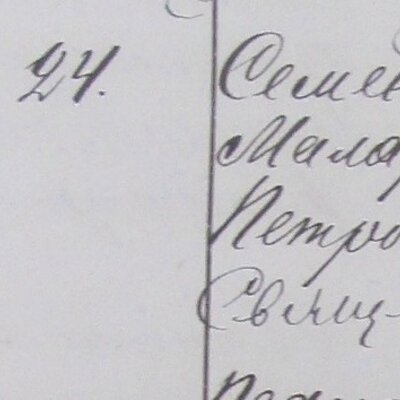 24. Семе
Мала
Петро
Свящ-